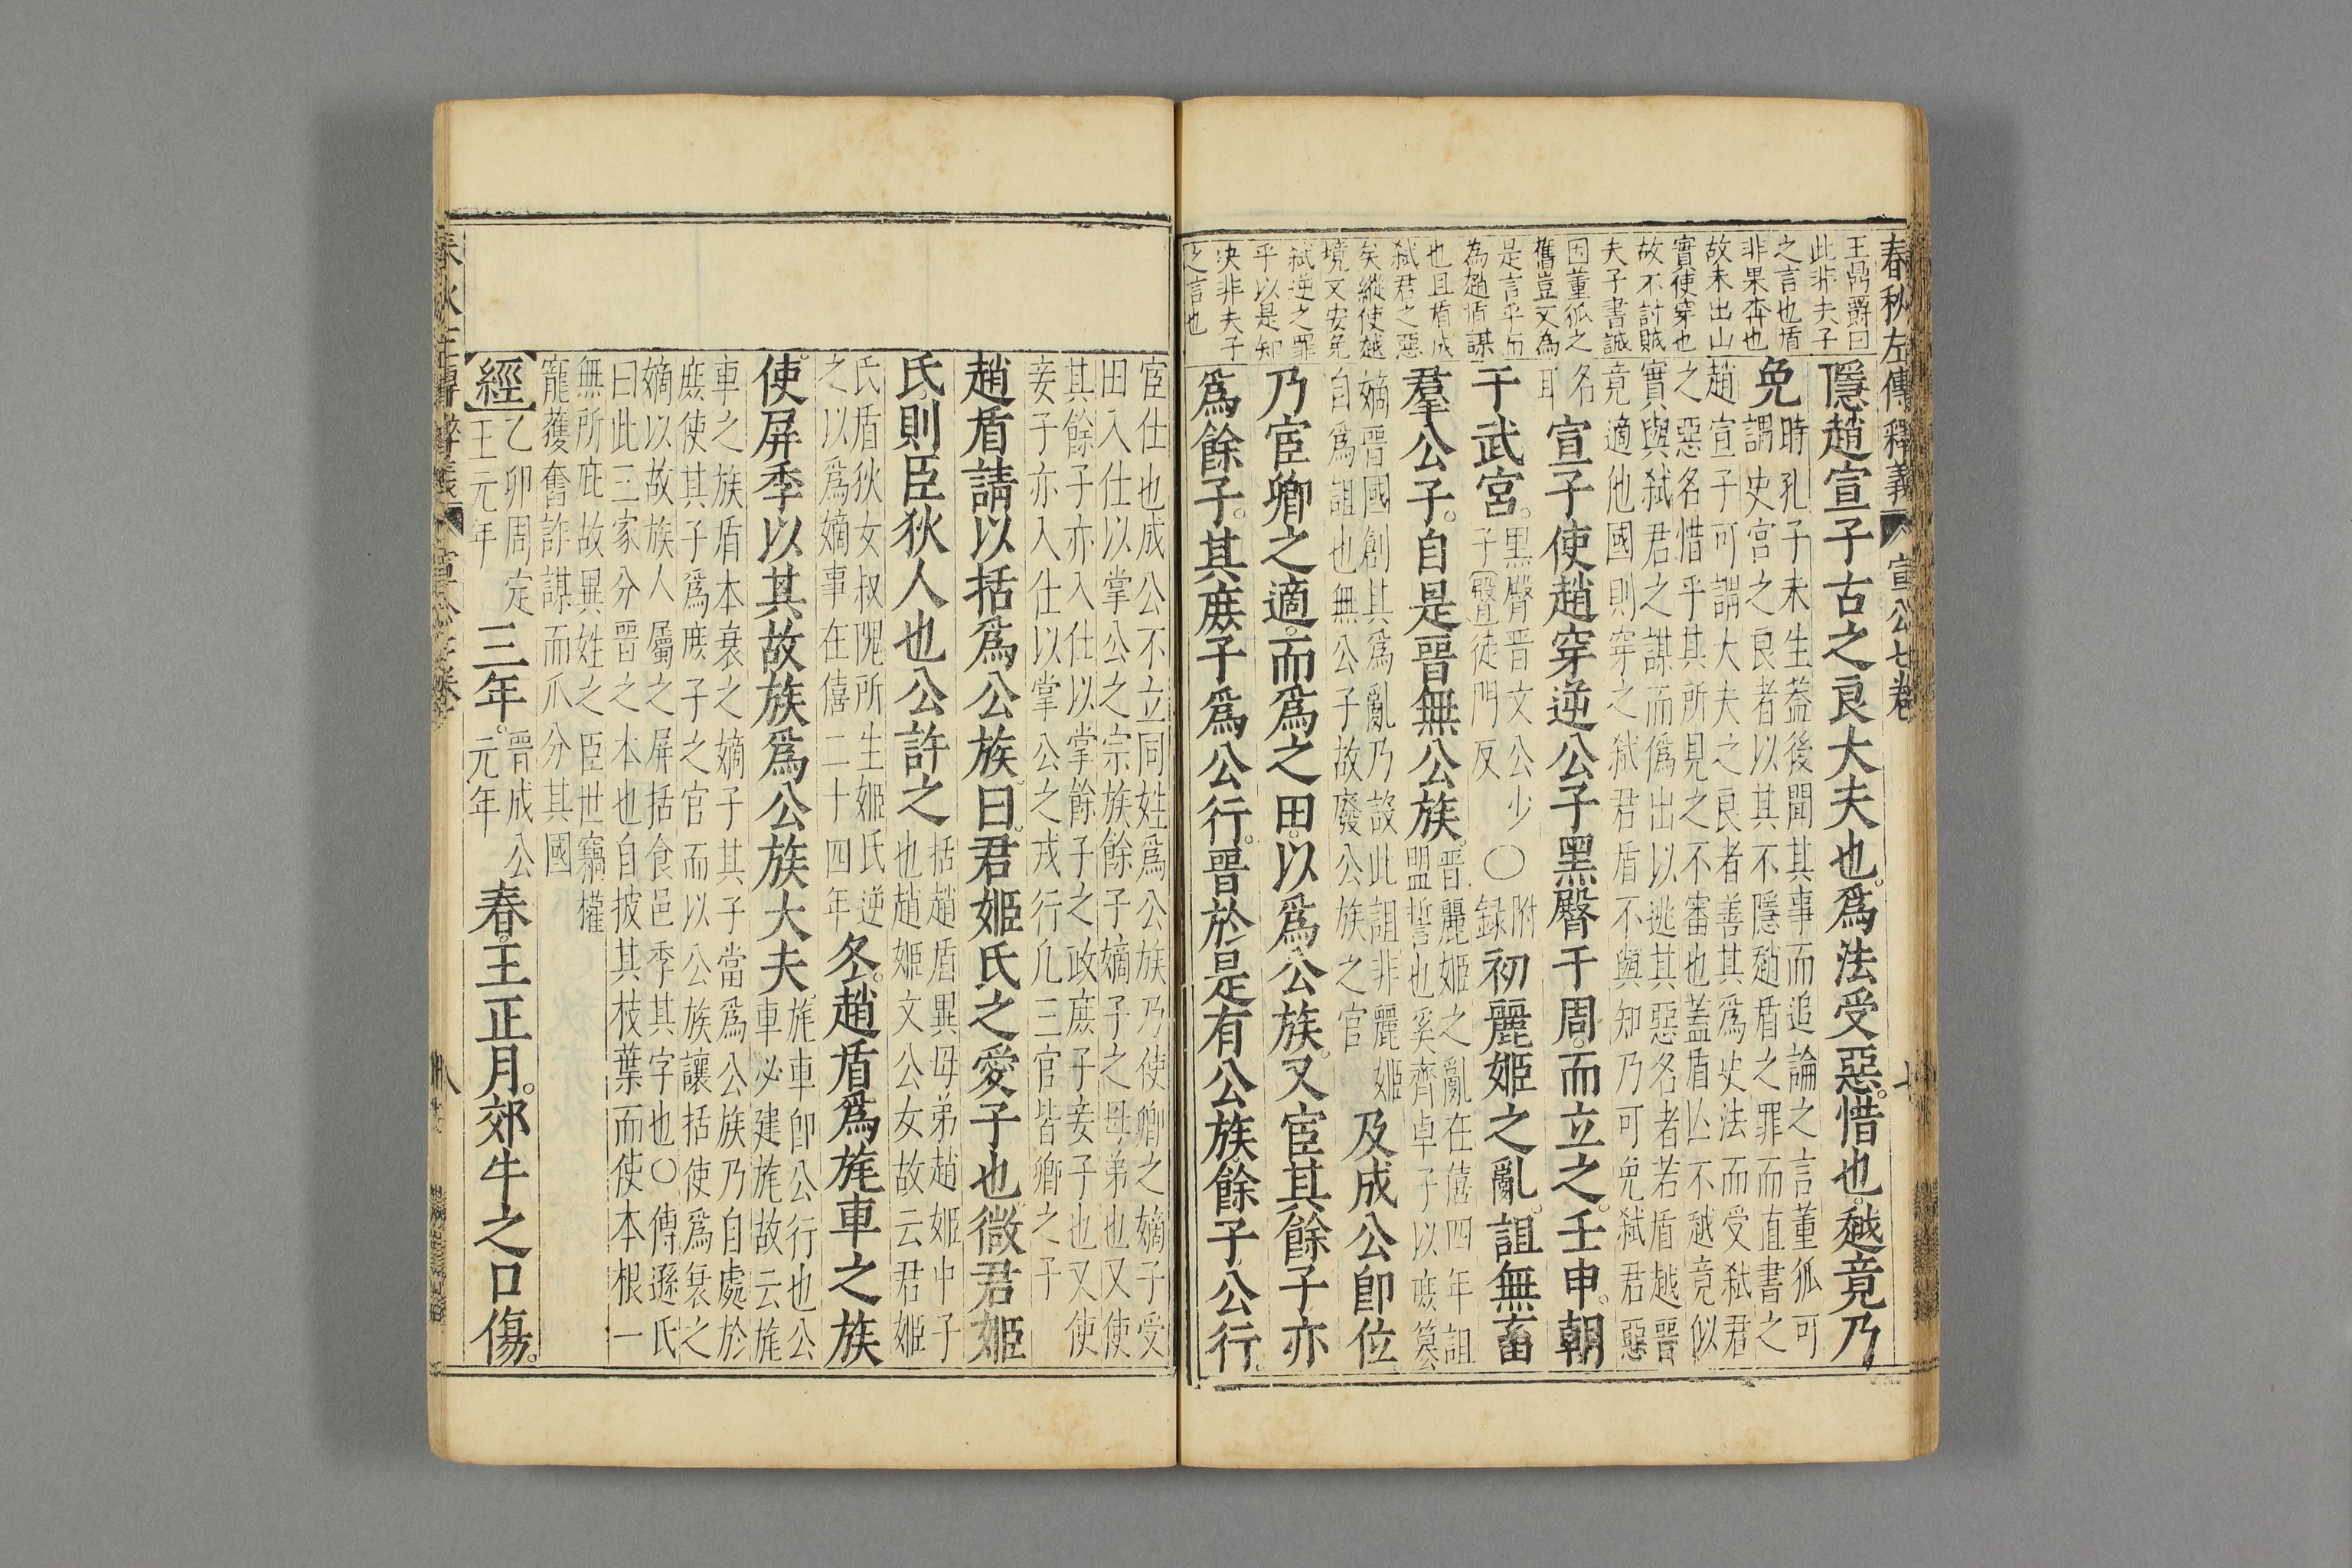 春秋左傳釋義 宣公七卷
王鼎爵曰
此非夫子
之言也盾
非果奔也
故未出山
實使穿也
故不討賊
夫子書誠
因董狐之
舊豈文為
是言乎而
為趙盾謀
也且盾成
弑君之惡
矣縱使越
境又安免
弑逆之罪
乎以是知
决非夫子
之言也
隱趙宣子古之良大夫也爲法受惡惜也越竟乃
免時孔子未生葢後聞其事而追論之言董狐可
謂史官之良者以其不隱趙盾之罪而直書之
趙宣子可謂大夫之良者善其爲史法而受弑君
之惡名惜乎其所見之不審也蓋盾亾不越竟似
實與弑君之謀而僞出以逃其惡名者若盾越晋
竟適他國則穿之弑君盾不與知乃可免弑君惡
名
耳宣子使趙穿逆公子黑臀于周而立之壬申朝
于武宮黑臀晋文公少
子臀徒門反〇附
録初麗姬之亂詛無畜
羣公子自是晋無公族晋麗姬之亂在僖四年詛
盟誓也奚齊卓子以庶簒
嫡晋國創其爲亂乃設此詛非麗姬
自爲詛也無公子故廢公族之官及成公卽位
乃宦卿之適而爲之田以爲公族又宦其餘子亦
爲餘子其庶子爲公行晋於是有公族餘子公行
宦仕也成公不立同姓爲公族乃使卿之嫡子受
田入仕以掌公之宗族餘子嫡子之母弟也又使
其餘子亦入仕以掌餘子之政庶子妾子也又使
妾子亦入仕以掌公之戎行凡三官皆卿之子
趙盾請以括爲公族曰君姬氏之愛子也微君姬
氏則臣狄人也公許之括趙盾異母弟趙姬中子
也趙姬文公女故云君姬
氏盾狄女叔隗所生姬氏逆
之以爲嫡事在僖二十四年冬趙盾爲旄車之族
使屏季以其故族爲公族大夫旄車卽公行也公
車必建旄故云旄
車之族盾本衰之嫡子其子當爲公族乃自處於
庶使其子爲庶子之官而以公族讓括使爲衰之
嫡以故族人屬之屏括食邑季其字也〇傳遜氏
曰此三家分晋之本也自披其枝葉而使本根一
無所庇故異姓之臣世竊權
寵獲奮詐謀而爪分其國
經乙卯周定
王元年三年晋成公
元年春王正月郊牛之口傷